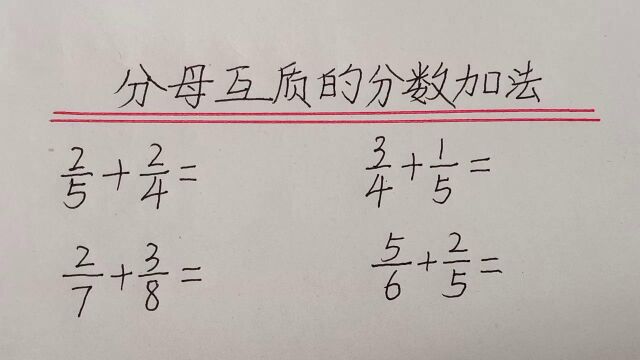 分母互质的分数加法
2/5+2/4= 3/4+1/5=
2/7+3/8= 5/6+2/5=